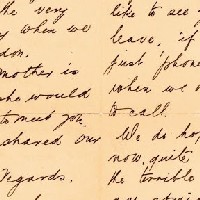 the very
y when we
don.
mother is
she would
to meet you.
shared our
Regards.
like to see
leave, if
just phone
when we a
to call.
We do hop
now quite
the terrible